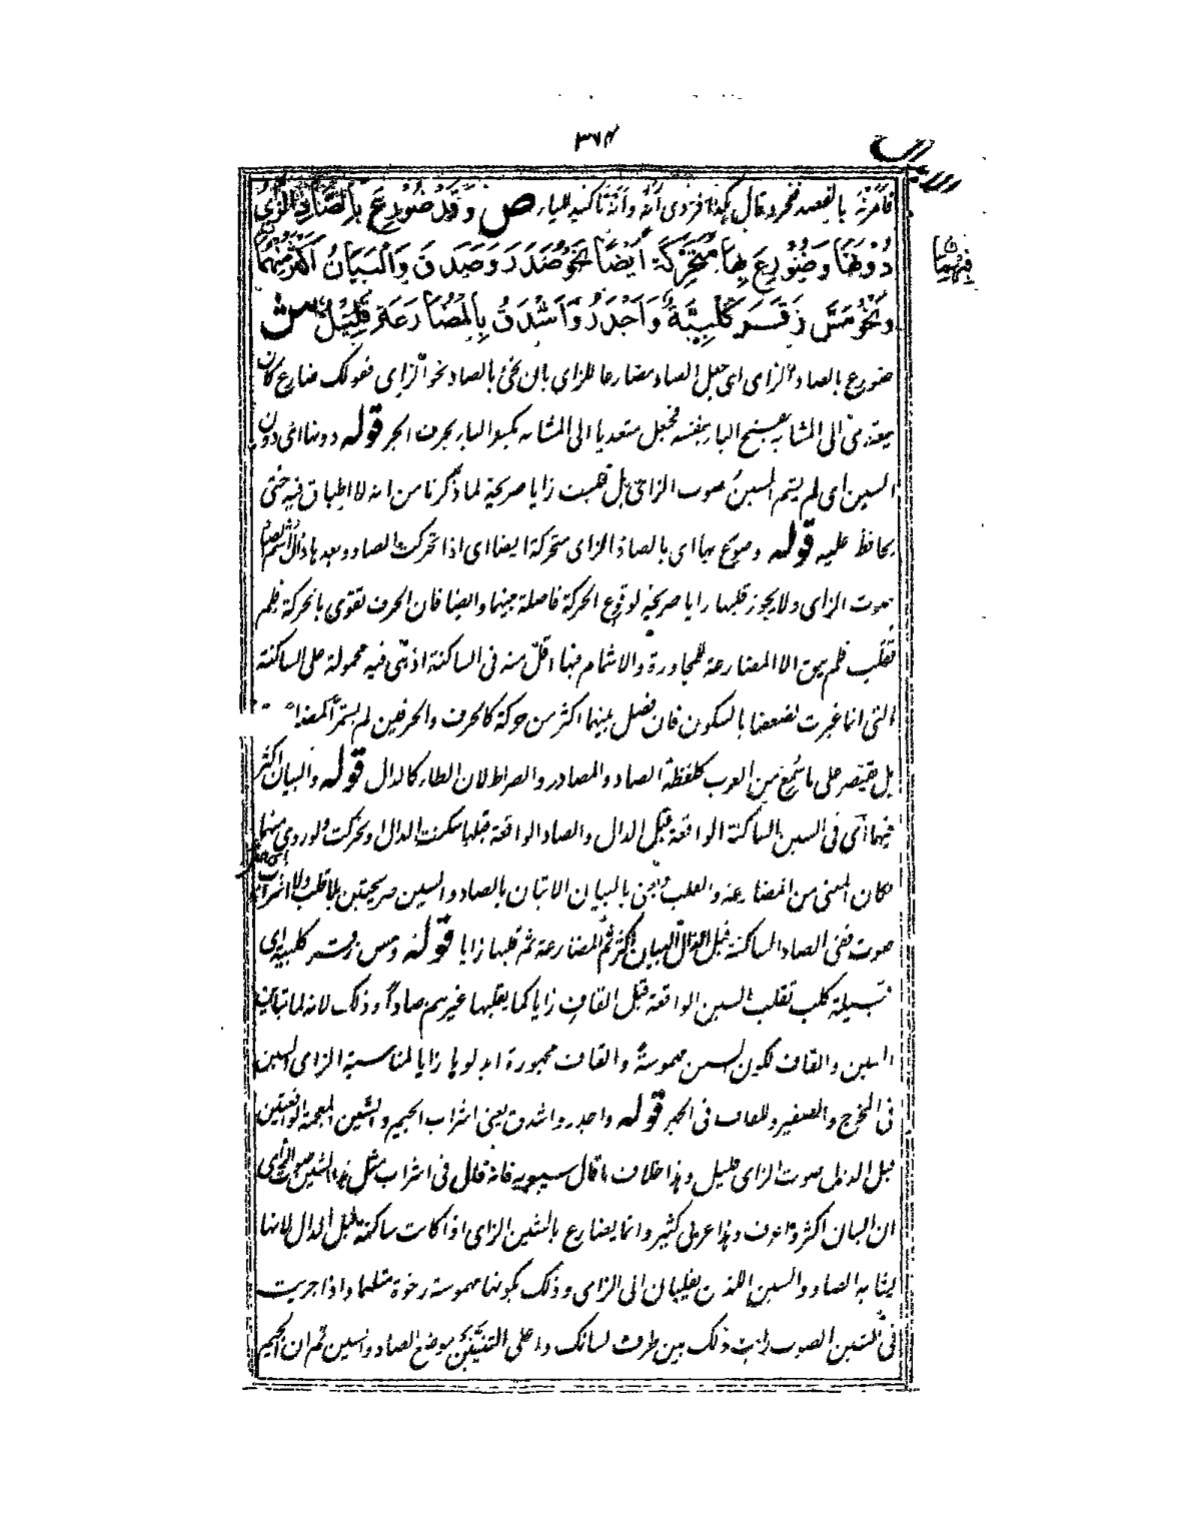 ٣٧٤
فامرته بالفصد فنحر وقال هكذا فزدى أنه وأنه تأكيد للياء ص وَقَدْ ضُوْرِعَ بِالصَّادِ الزَّايُ
دُوْنَهَا وَضُوْرِعَ بِهَا مُتَحَرِّكَةً أَيْضًا نَحْوُ صَدَرَ وَصَدَقَ وَالْبَيَانُ أَكْثَرُ مِنْهُمَا
وَنَحْوُ مَسَّ زَقَرَ كَلْبِيَّةٌ وَأَجْدَرُ وَأَشْدَقُ بِالْمُضَارَعَةِ قَلِيْلٌ ش
ضورع بالصاد الزاى اى جعل الصاد مضارعا للزاى بان نحى بالصاد نحو الزاى فقولك ضارع كان
يتعدى الى المشابه بفتح الباء بنفسه فجعل متعديا الى المشابه بكسر الباء بحرف الجر قوله دونها اى دون
السين اى لم يشم السين صوت الزاى بل قلبت زايا صريحة لما ذكرنا من انه لا اطباق فيه حتى
يحافظ عليه قوله وضورع بها اى بالصاد الزاى متحركة ايضا اى اذا تحركت الصاد وبعدها دال اشم الصاد
صوت الزاى ولا يجوز قلبها زايا صريحة لوقوع الحركة فاصلة بينهما وايضا فان الحرف تقوى بالحركة فلم
تقلب فلم يبق الا المضارعة للمجاورة والاشمام فيها اقل منه فى الساكنة اذ هى فيه محمولة على الساكنة
التى انما غيرت لضعفها بالسكون فان فصل بينهما اكثر من حركة كالحرف والحرفين لم يستمر المضا
بل يقتصر على ما سمع من العرب كلفظة الصاد والمصادر والصراط لان الطاء كالدال قوله والبيان اكثر
فيهما اى فى السين الساكنة الواقعة قبل الدال والصاد الواقعة قبلها سكنت الدال او تحركت ولو روى منهما
لكان المعنى من المضارعة والقلب ويعنى بالبيان الاتيان بالصاد والسين صريحتين بلا قلب ولا اشراب
صوت ففى الصاد الساكنة قبل الدال البيان اكثر ثم المضارعة ثم قلبها زايا قوله ومس زقر كلبية اى
قبيلة كلب تقلب السين الواقعة قبل القاف زايا كما يقلبها غيرهم صادا وذلك لانه لما تباين
السين والقاف لكون السين مهموسة والقاف مجهورة ابدلوها زايا لمناسبة الزاى السين
فى المخرج والصفير وللقاف فى الجهر قوله واجدر واشدق يعنى اشراب الجيم والشين المعجمة الواقعتين
قبل الدال صوت الزاى قليل وهذا خلاف ما قال سيبويه فانه قال فى اشراب مثل هذا الشين صوت الزاى
ان البيان اكثر واعرف وهذا عربى كثير وانما يضارع بالشين الزاى اذا كانت ساكنة قبل الدال لانها
تشابه الصاد والسين اللذين يقلبان الى الزاى وذلك بكونها مهموسة رخوة مثلهما واذا اجريت
فى الشين الصوت رايت ذلك بين طرف لسانك واعلى الثنيتين موضع الصاد والسين ثم ان الجيم